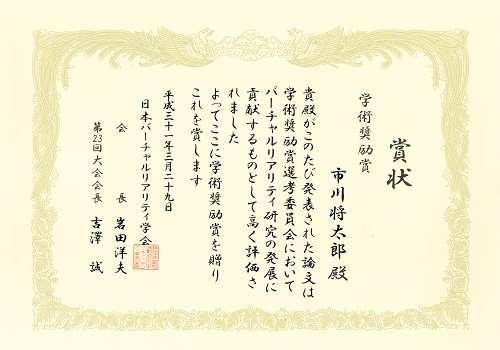 賞状
学術奨励賞
市川将太郎 殿
貴殿がこのたび発表された論文は
学術奨励賞選考委員会において
バーチャルリアリティ研究の発展に
貢献するものとして高く評価さ
れました
よってここに学術奨励賞を贈り
これを賞します
平成三十一年三月二十九日
日本バーチャルリアリティ学会
会長 岩田洋夫
第23回大会会長 吉澤 誠